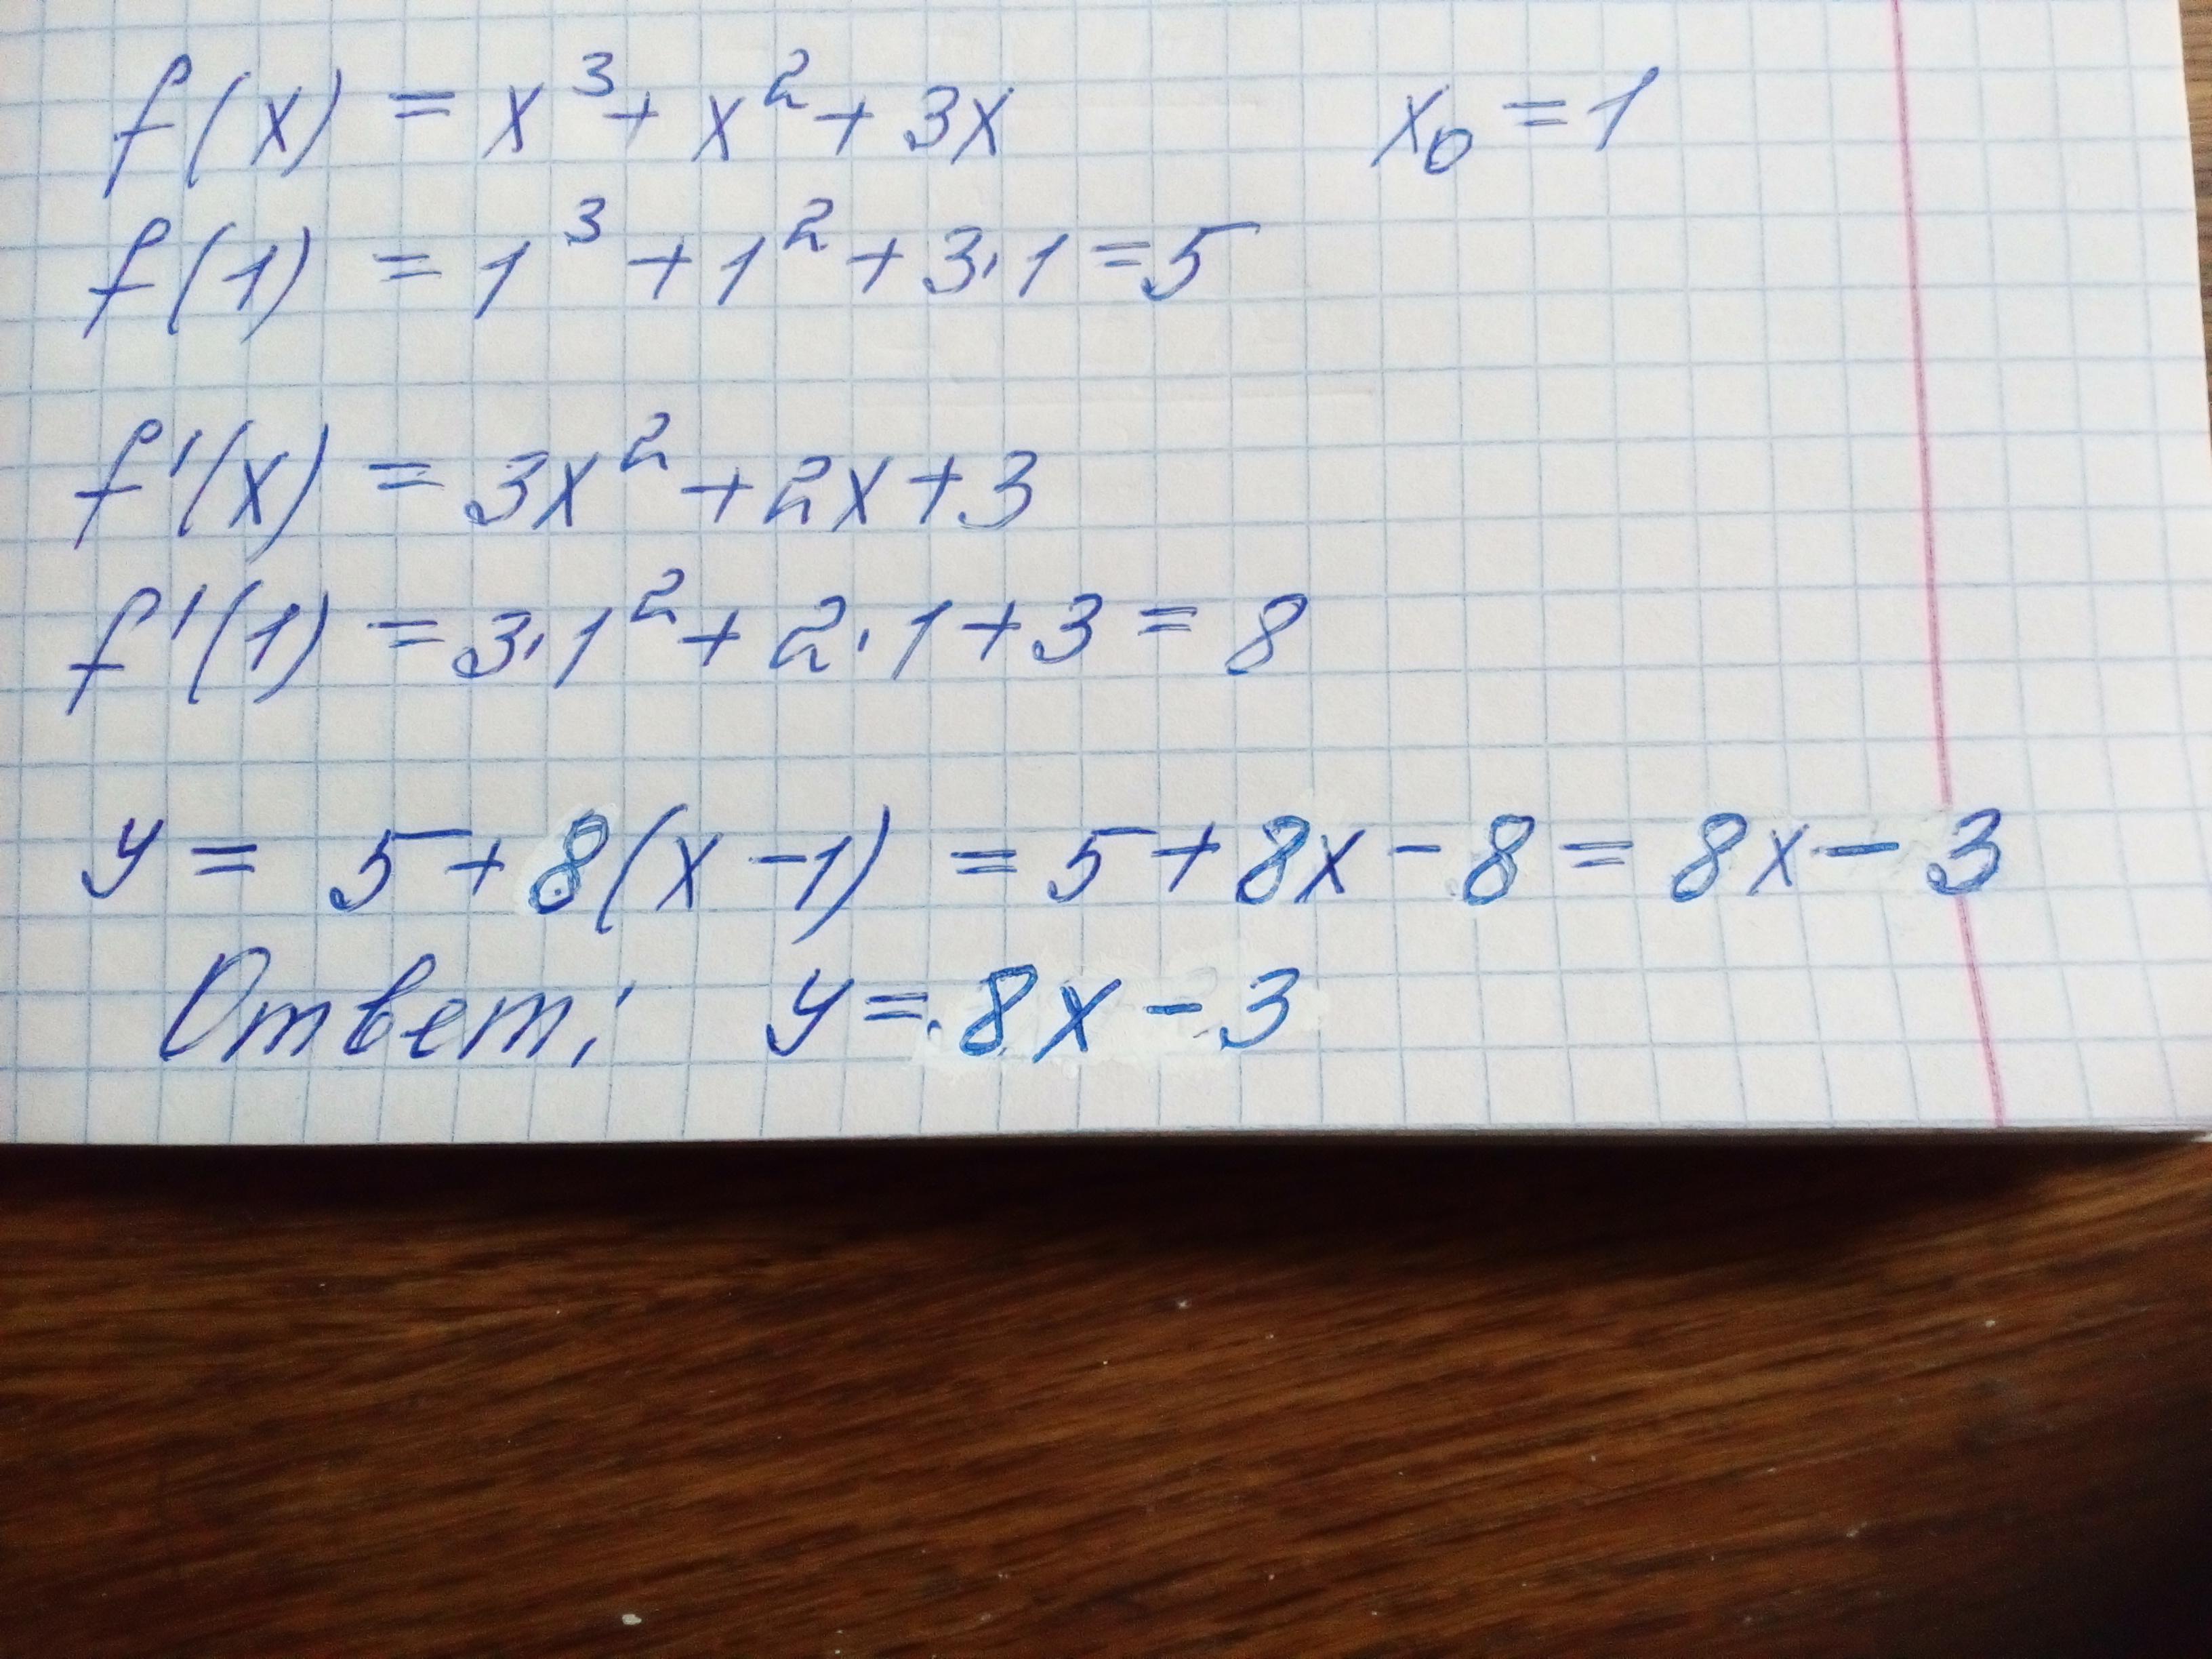 f(x) = x³ + x² + 3x x₀ = 1
f(1) = 1³ + 1² + 3·1 = 5
f'(x) = 3x² + 2x + 3
f'(1) = 3·1² + 2·1 + 3 = 8
y = 5 + 8(x - 1) = 5 + 8x - 8 = 8x - 3
Ответ: y = 8x - 3